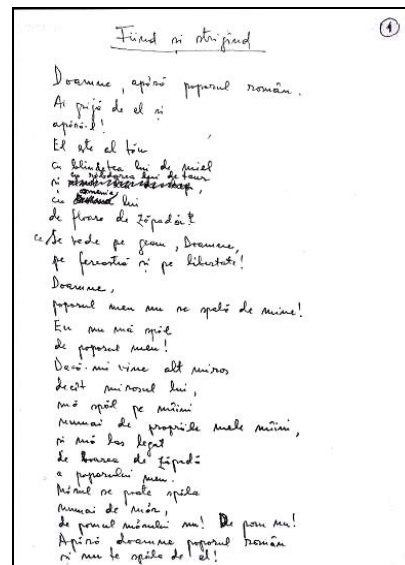 Fiind și strigînd
1
Doamne, apără poporul român.
Ai grijă de el și
apără-l!
El este al tău
cu blîndețea lui de miel
cu răbdarea lui de taur
și
cu omenia lui
de floare de zăpadă!
ce se vede pe geam, Doamne,
pe fereastră și pe libertate!
Doamne,
poporul meu nu se spală de mine!
Eu nu mă spăl
de poporul meu!
Dacă-mi vine alt miros
decît mirosul lui,
mă spăl pe mîini
numai de propriile mele mîini,
și mă las legat
de boarea de zăpadă
a poporului meu.
Mărul se poate spăla
numai de măr,
de pomul mărului nu! De pom nu!
Apără doamne poporul român
și nu te spăla de el!